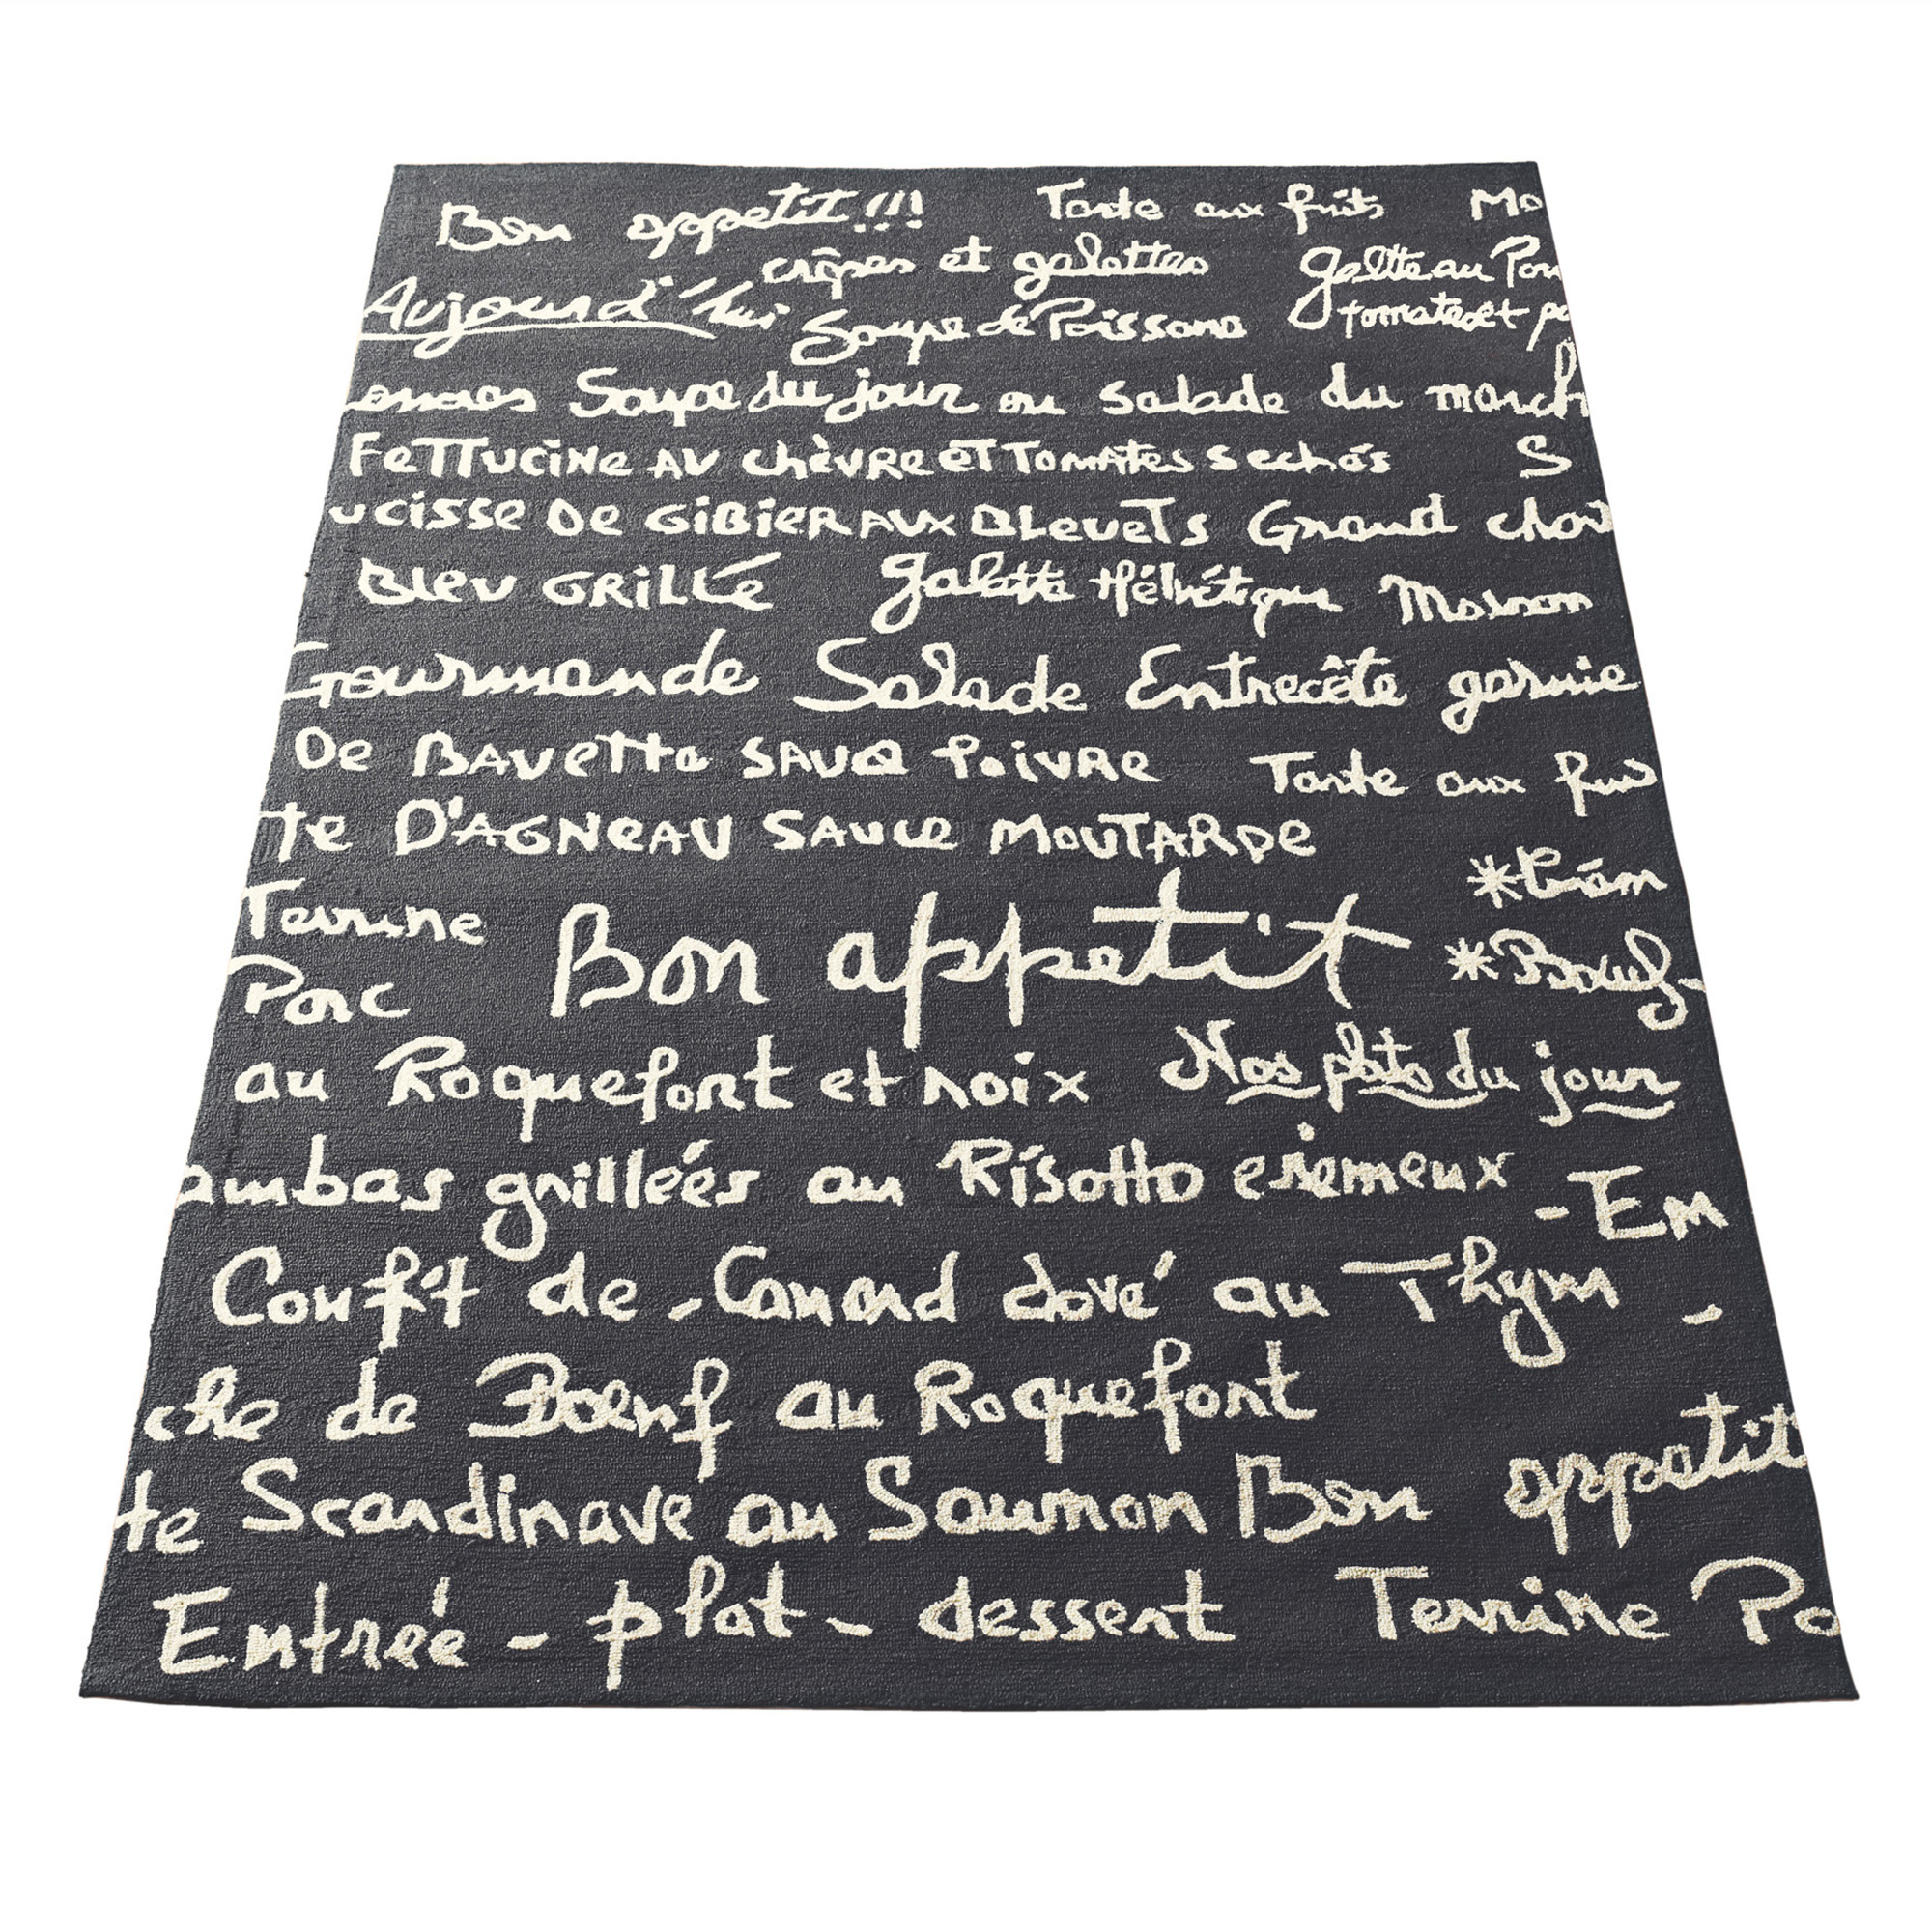 Bon appetit!!! Tarte aux fruits Mo
crêpes et galettes Galette au Pou
Aujourd'hui Soupe de Poissons tomates et po
Soupe du jour ou salade du march
FeTTuciNe AU chèvRe eT TomATes sechés S
ucisse De GiBieR AUX BLeueTs Grand choi
BLeu GRiLLé galette Hélvétique Maison
Gourmande Salade Entrecôte garnie
De BAvette SAUce PoivRe Tarte aux frui
Te D'AGNeAU SAUce MOUTARDe
*Crèm
Terrine Bon appetit *Boeuf
Porc
au Roquefort et noix Nos plats du jour
ambas grilleés au Risotto cremeux - Em
Confit de Canard doré au Thym -
che de Boeuf au Roquefort
te Scandinave au Saumon Bon appetit
Entreé - plat - dessert Terrine Po